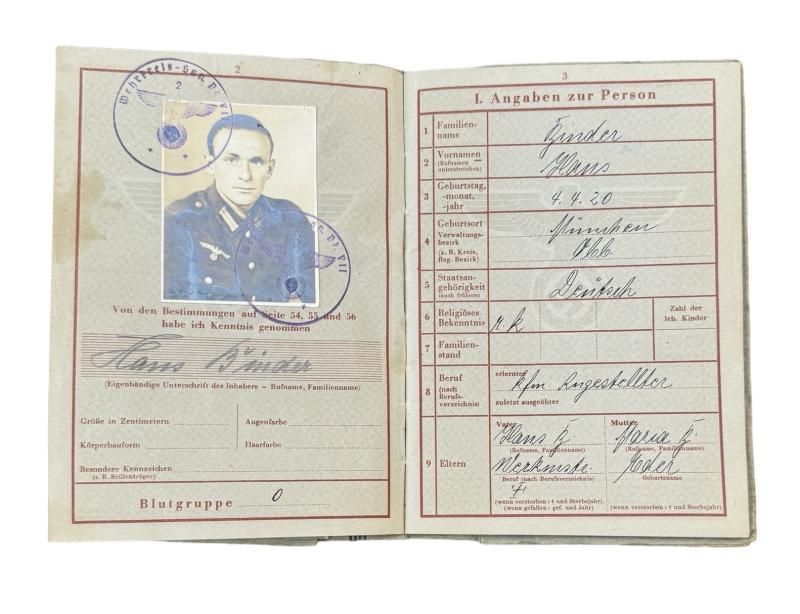 2
Wehrkreis-San. Abt. VII
2
San. Abt. VII
Von den Bestimmungen auf Seite 54, 55 und 56
habe ich Kenntnis genommen
Hans Binder
(Eigenhändige Unterschrift des Inhabers – Rufname, Familienname)
Größe in Zentimetern
Augenfarbe
Körperbauform
Haarfarbe
Besondere Kennzeichen
(z. B. Brillenträger)
Blutgruppe O
3
I. Angaben zur Person
1 Familien-
name
Binder
2 Vornamen
(Rufnamen
unterstreichen)
Hans
3 Geburtstag,
-monat,
-jahr
4. 4. 20
4 Geburtsort
Verwaltungs-
bezirk
(z. B. Kreis,
Reg. Bezirk)
München
Obb.
5 Staatsan-
gehörigkeit
(auch frühere)
Deutsch
6 Religiöses
Bekenntnis
r. k
Zahl der
leb. Kinder
7 Familien-
stand
8 Beruf
(nach
Berufs-
verzeichnis)
erlernter
kfm Angestellter
zuletzt ausgeübter
9 Eltern
Vater
Hans B.
(Rufname, Familienname)
Werkmstr.
Beruf (nach Berufsverzeichnis)
(wenn verstorben: † und Sterbejahr)
(wenn gefallen: gef. und Jahr)
Mutter
Maria B.
(Rufname, Familienname)
Eder
Geburtsname
(wenn verstorben: † und Sterbejahr)